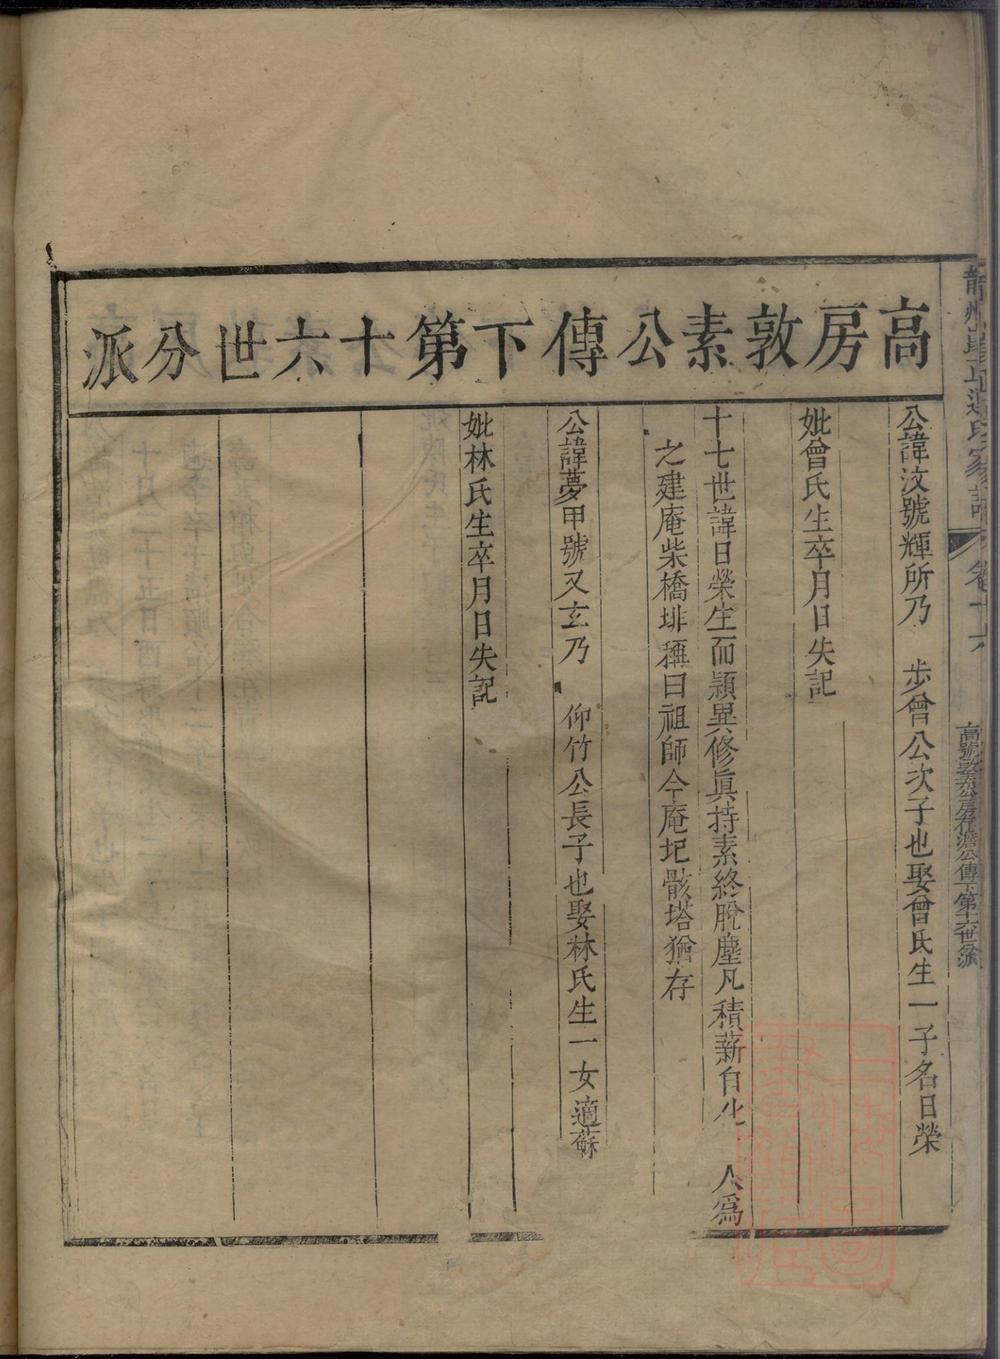 高房敦素公傳下第十六世分派
公諱汶號輝所乃　步曾公次子也娶曾氏生一子名日榮
妣曾氏生卒月日失記
十七世諱日榮生而穎異修眞持素終脫塵凡積薪自化　人爲
之建庵柴橋排稱曰祖師今庵圮骸塔猶存
公諱夢甲號又玄乃　仰竹公長子也娶林氏生一女適蘇
妣林氏生卒月日失記
氏家譜　卷十六